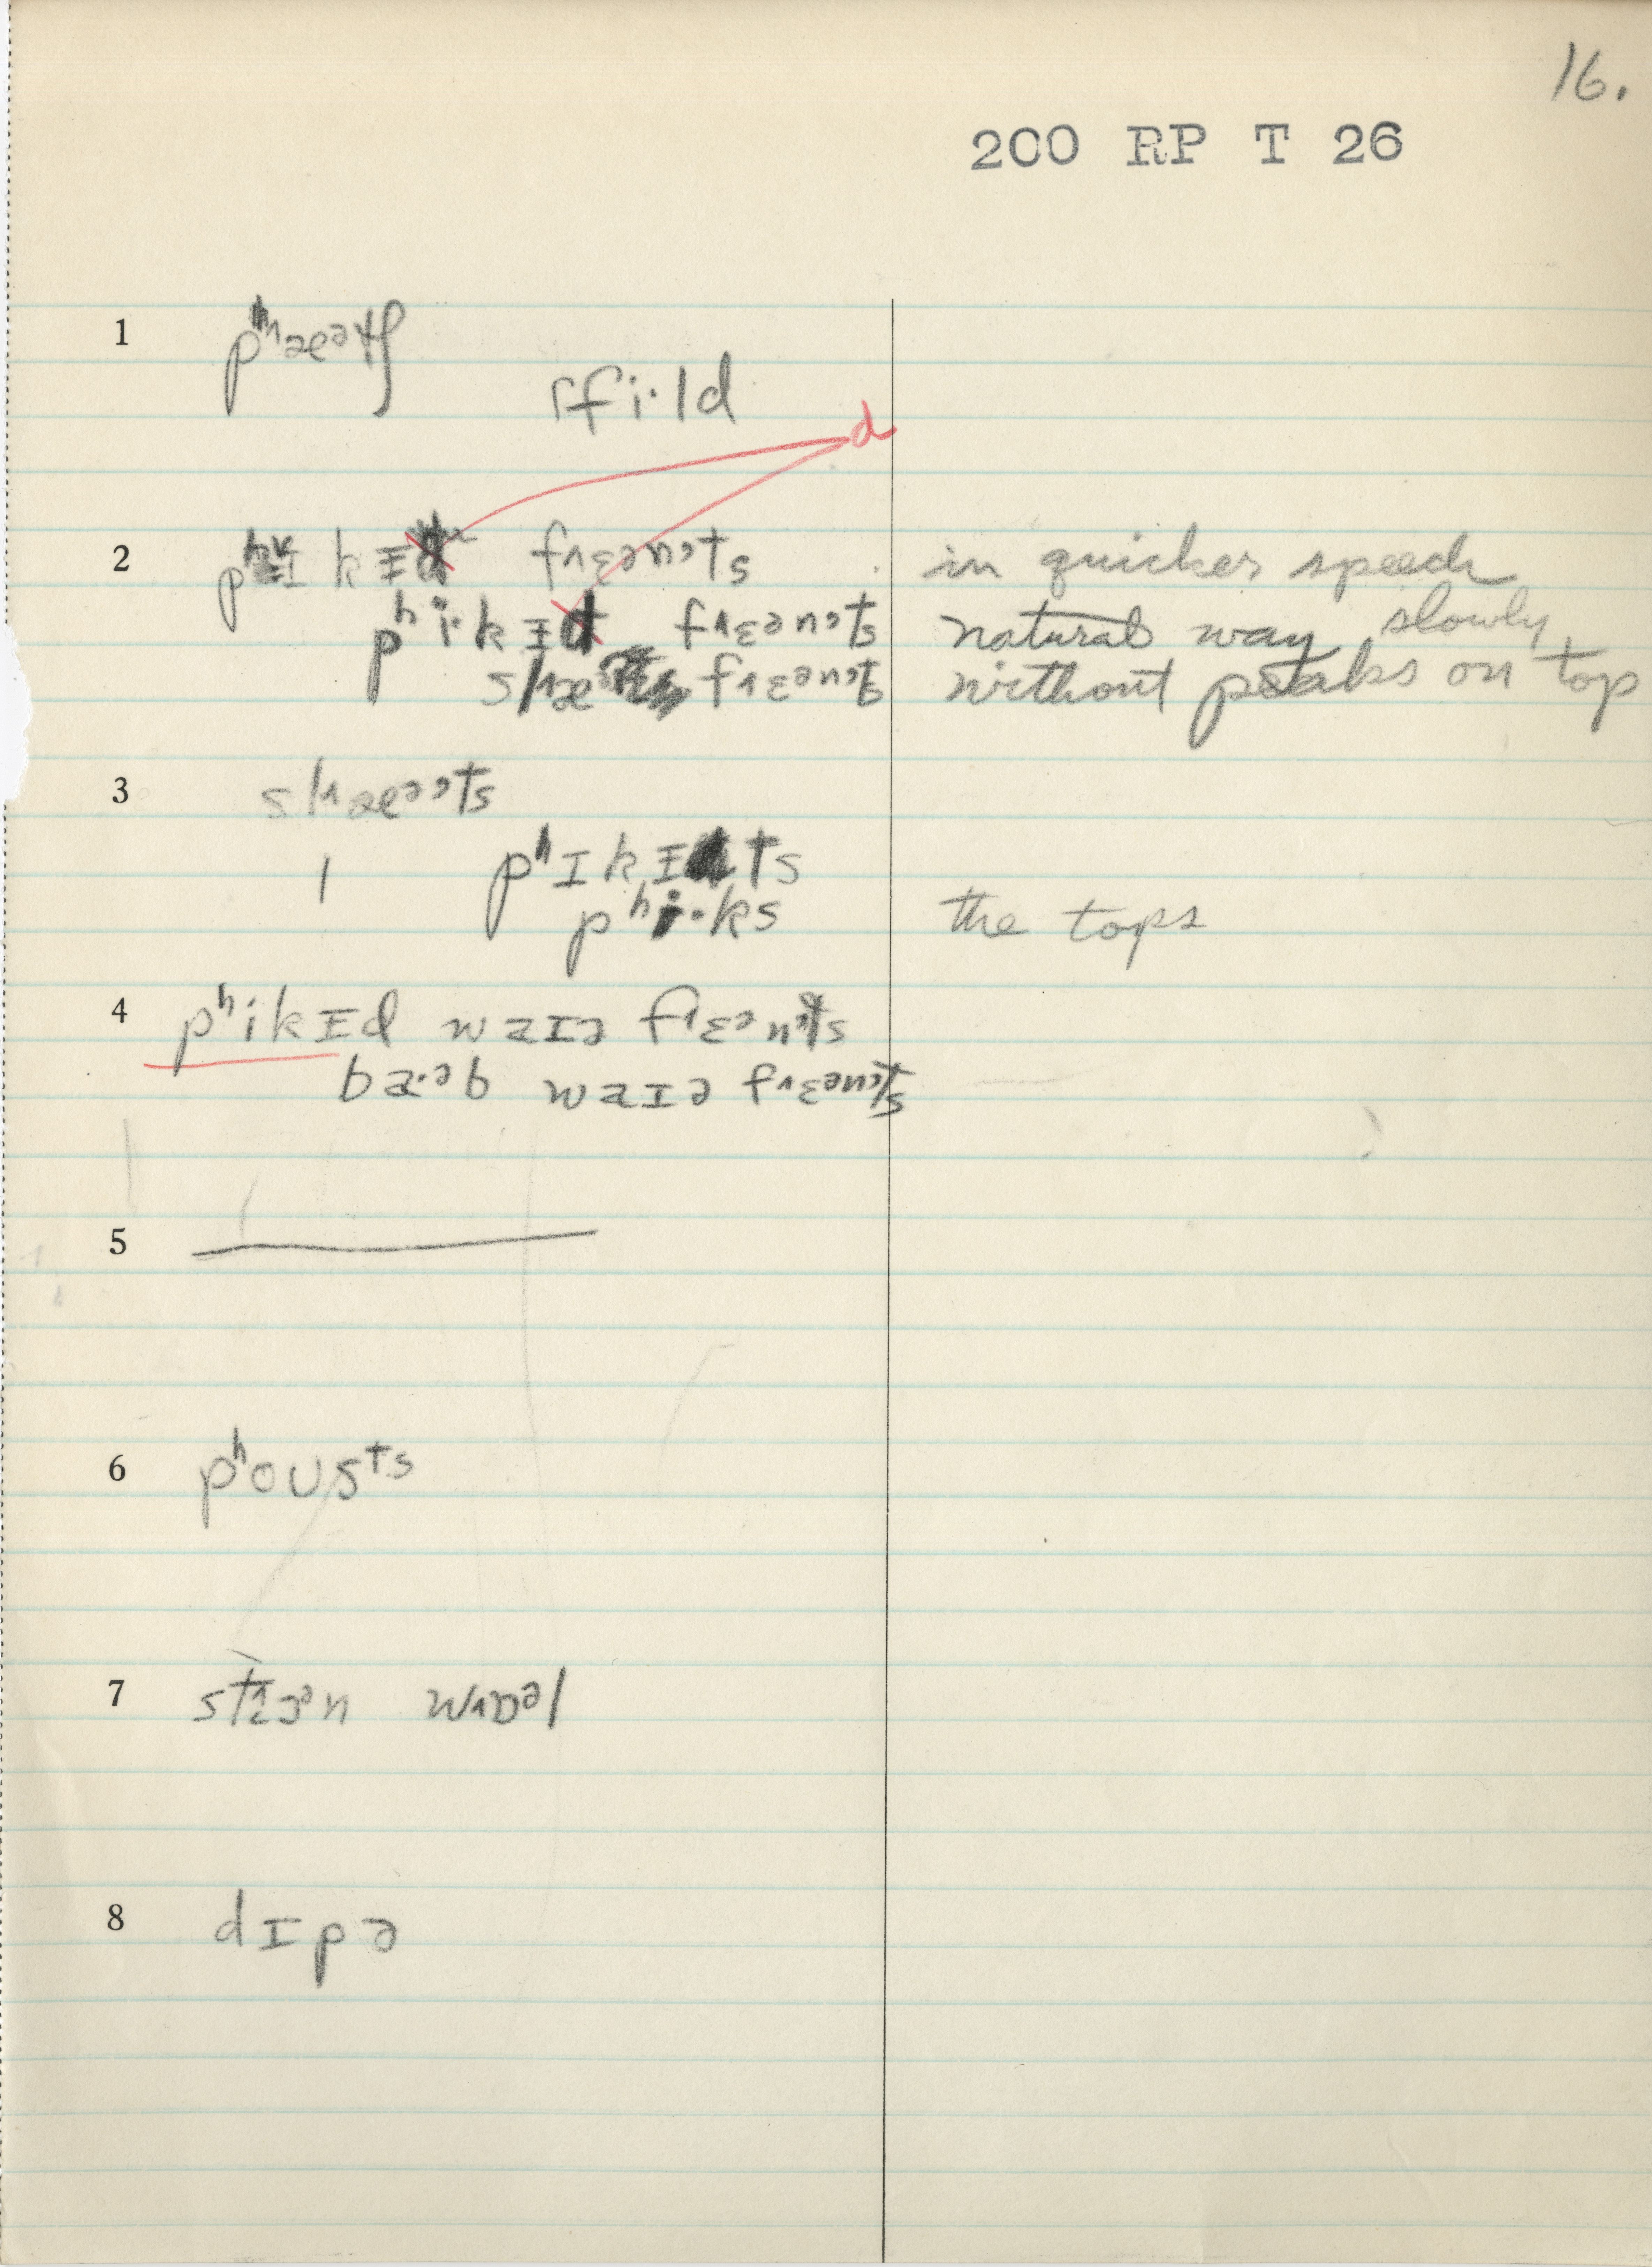 16.
200 RP T 26
1 pʰæᵊtʃ
꜒fi·ld
d
2 pʰɪkɪd fɛᵊnᵗs in quicker speech
pʰi·kɪd fɛənᵗs natural way slowly
slæ fɛᵊnᵗs without peaks on top
3 slæᵊᵗs
| pʰɪkɪts
pʰi·ks the tops
4 pʰikɪd waɪə fɛᵊnᵗs
ba·əb waɪə fɛᵊnᵗs
5
6 pʰoʊsᵗs
7 wɒᵊl
8 dɪpə